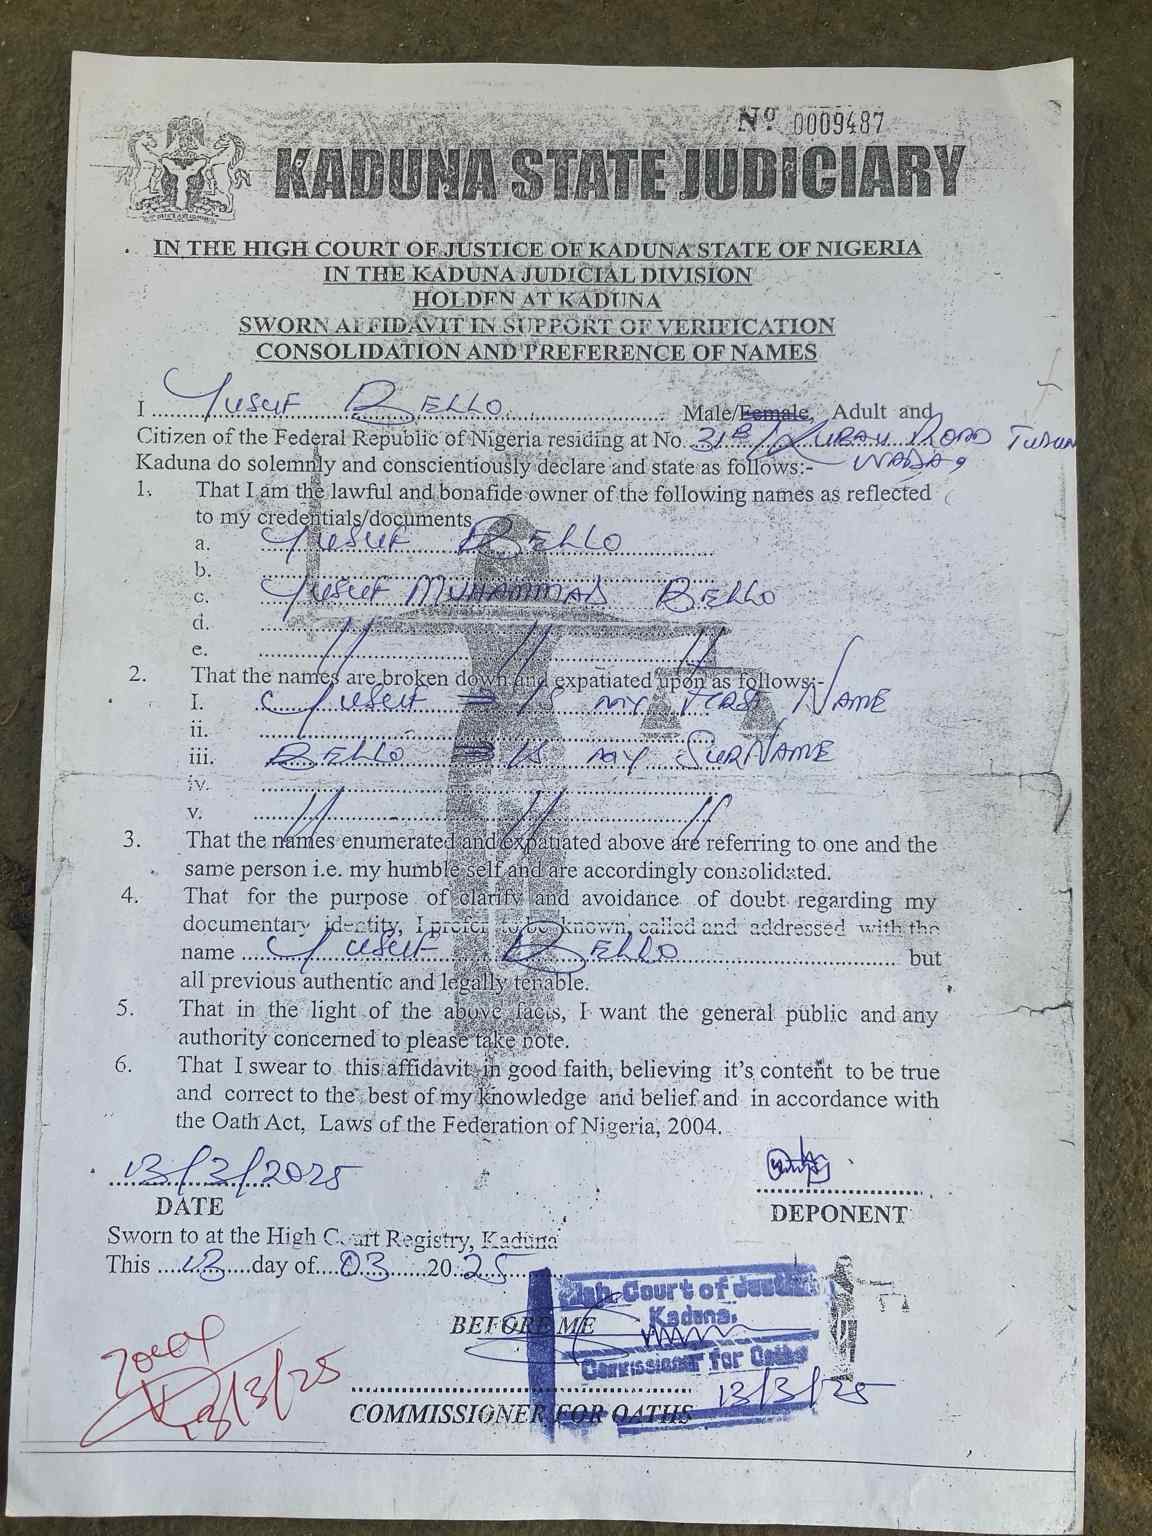 Nº 0009487
KADUNA STATE JUDICIARY
IN THE HIGH COURT OF JUSTICE OF KADUNA STATE OF NIGERIA
IN THE KADUNA JUDICIAL DIVISION
HOLDEN AT KADUNA
SWORN AFFIDAVIT IN SUPPORT OF VERIFICATION
CONSOLIDATION AND PREFERENCE OF NAMES
I Yusuf Bello Male/Female, Adult and
Citizen of the Federal Republic of Nigeria residing at No. 31B Road Tudun
Kaduna do solemnly and conscientiously declare and state as follows:- Wada
1. That I am the lawful and bonafide owner of the following names as reflected
to my credentials/documents
a. Yusuf Bello
b.
c. Yusuf Muhammad Bello
d.
e.
2. That the names are broken down and expatiated upon as follows:-
I. Yusuf = is my First Name
ii.
iii. Bello = is my SurName
iv.
v.
3. That the names enumerated and expatiated above are referring to one and the
same person i.e. my humble self and are accordingly consolidated.
4. That for the purpose of clarify and avoidance of doubt regarding my
documentary identity, I prefer to be known, called and addressed with the
name Yusuf Bello but
all previous authentic and legally tenable.
5. That in the light of the above facts, I want the general public and any
authority concerned to please take note.
6. That I swear to this affidavit in good faith, believing it's content to be true
and correct to the best of my knowledge and belief and in accordance with
the Oath Act, Laws of the Federation of Nigeria, 2004.
13/3/2025
DATE
DEPONENT
Sworn to at the High Court Registry, Kaduna
This 13 day of 03 2025
High Court of Justice
Kaduna.
BEFORE ME
Commissioner for Oaths
13/3/25
COMMISSIONER FOR OATHS
13/3/25